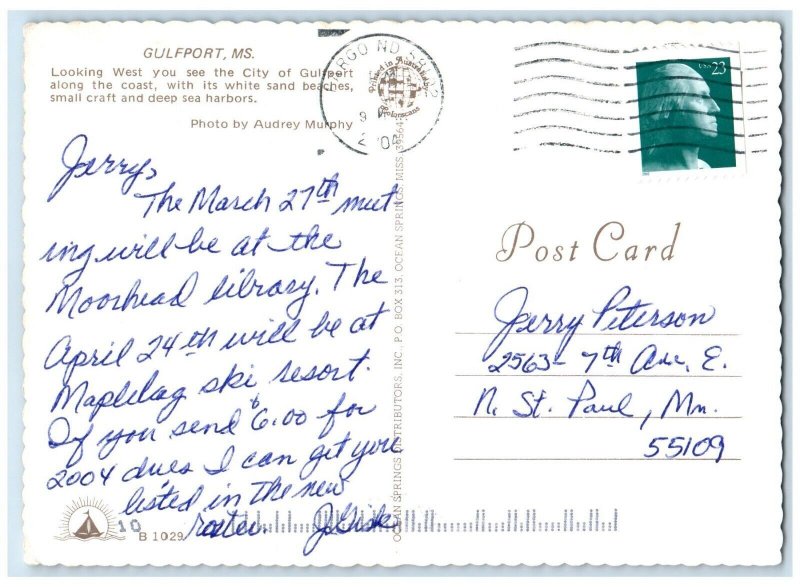 GULFPORT, MS.
Looking West you see the City of Gulfport
along the coast, with its white sand beaches,
small craft and deep sea harbors.
Photo by Audrey Murphy
Jerry,
The March 27th meet
ing will be at the
Moorhead library. The
April 24th will be at
Maplelag ski resort.
If you send $6.00 for
2004 dues I can get you
listed in the new
roster.
B 1029
10
OCEAN SPRINGS DISTRIBUTORS, INC., P.O. BOX 313, OCEAN SPRINGS, MISS. 39564
USA 23
Post Card
Jerry Peterson
2563- 7th Ave. E.
N. St. Paul, Mn.
55109